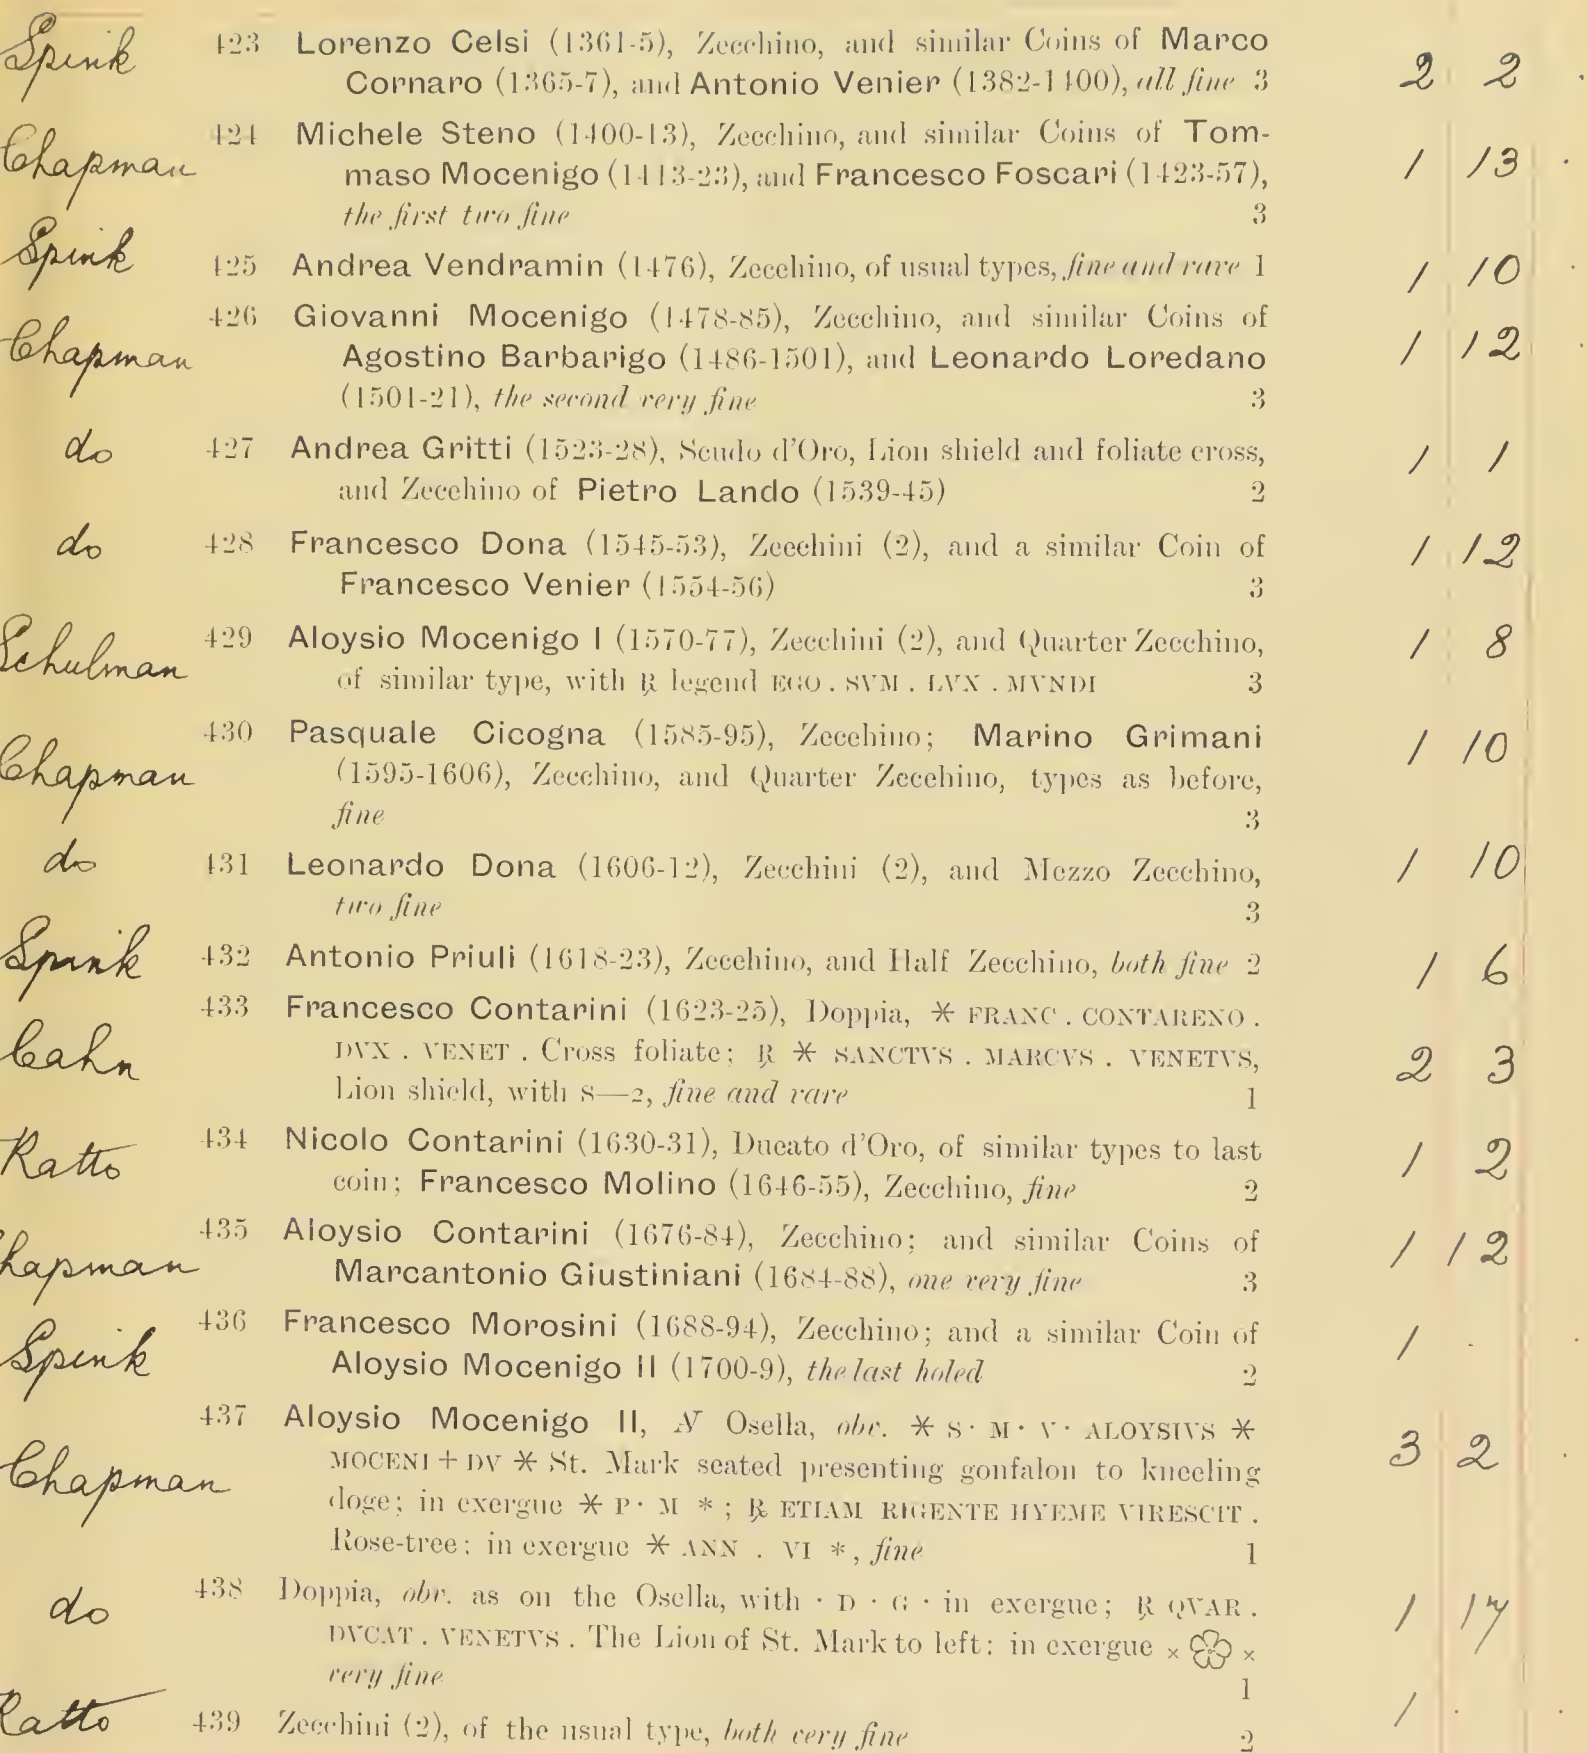 Spink 423 Lorenzo Celsi (1361-5), Zecchino, and similar Coins of Marco 2 2 .
Cornaro (1365-7), and Antonio Venier (1382-1400), all fine 3
Chapman 424 Michele Steno (1400-13), Zecchino, and similar Coins of Tom- 1 13 .
maso Mocenigo (1413-23), and Francesco Foscari (1423-57),
the first two fine 3
Spink 425 Andrea Vendramin (1476), Zecchino, of usual types, fine and rare 1 1 10 .
Chapman 426 Giovanni Mocenigo (1478-85), Zecchino, and similar Coins of 1 12 .
Agostino Barbarigo (1486-1501), and Leonardo Loredano
(1501-21), the second very fine 3
do 427 Andrea Gritti (1523-28), Scudo d'Oro, Lion shield and foliate cross, 1 1
and Zecchino of Pietro Lando (1539-45) 2
do 428 Francesco Dona (1545-53), Zecchini (2), and a similar Coin of 1 12
Francesco Venier (1554-56) 3
Schulman 429 Aloysio Mocenigo I (1570-77), Zecchini (2), and Quarter Zecchino, 1 8
of similar type, with ℞ legend EGO . SVM . LVX . MVNDI 3
Chapman 430 Pasquale Cicogna (1585-95), Zecchino; Marino Grimani 1 10
(1595-1606), Zecchino, and Quarter Zecchino, types as before,
fine 3
do 431 Leonardo Dona (1606-12), Zecchini (2), and Mezzo Zecchino, 1 10
two fine 3
Spink 432 Antonio Priuli (1618-23), Zecchino, and Half Zecchino, both fine 2 1 6
Cahn 433 Francesco Contarini (1623-25), Doppia, * FRANC . CONTARENO . 2 3
DVX . VENET . Cross foliate; ℞ * SANCTVS . MARCVS . VENETVS,
Lion shield, with S—2, fine and rare 1
Ratto 434 Nicolo Contarini (1630-31), Ducato d'Oro, of similar types to last 1 2
coin; Francesco Molino (1646-55), Zecchino, fine 2
hapman 435 Aloysio Contarini (1676-84), Zecchino; and similar Coins of 1 12
Marcantonio Giustiniani (1684-88), one very fine 3
Spink 436 Francesco Morosini (1688-94), Zecchino; and a similar Coin of 1 . .
Aloysio Mocenigo II (1700-9), the last holed 2
Chapman 437 Aloysio Mocenigo II, N Osella, obv. * S · M · V · ALOYSIVS * 3 2 .
MOCENI + DV * St. Mark seated presenting gonfalon to kneeling
doge; in exergue * P · M *; ℞ ETIAM RIGENTE HYEME VIRESCIT .
Rose-tree; in exergue * ANN . VI *, fine 1
do 438 Doppia, obv. as on the Osella, with · D · G · in exergue; ℞ QVAR . 1 17
DVCAT . VENETVS . The Lion of St. Mark to left; in exergue × ×
very fine 1
Ratto 439 Zecchini (2), of the usual type, both very fine 2 1 . .